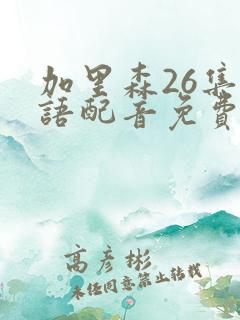 加里森26集
語配音免費
高彦彬
未经同意禁止转载